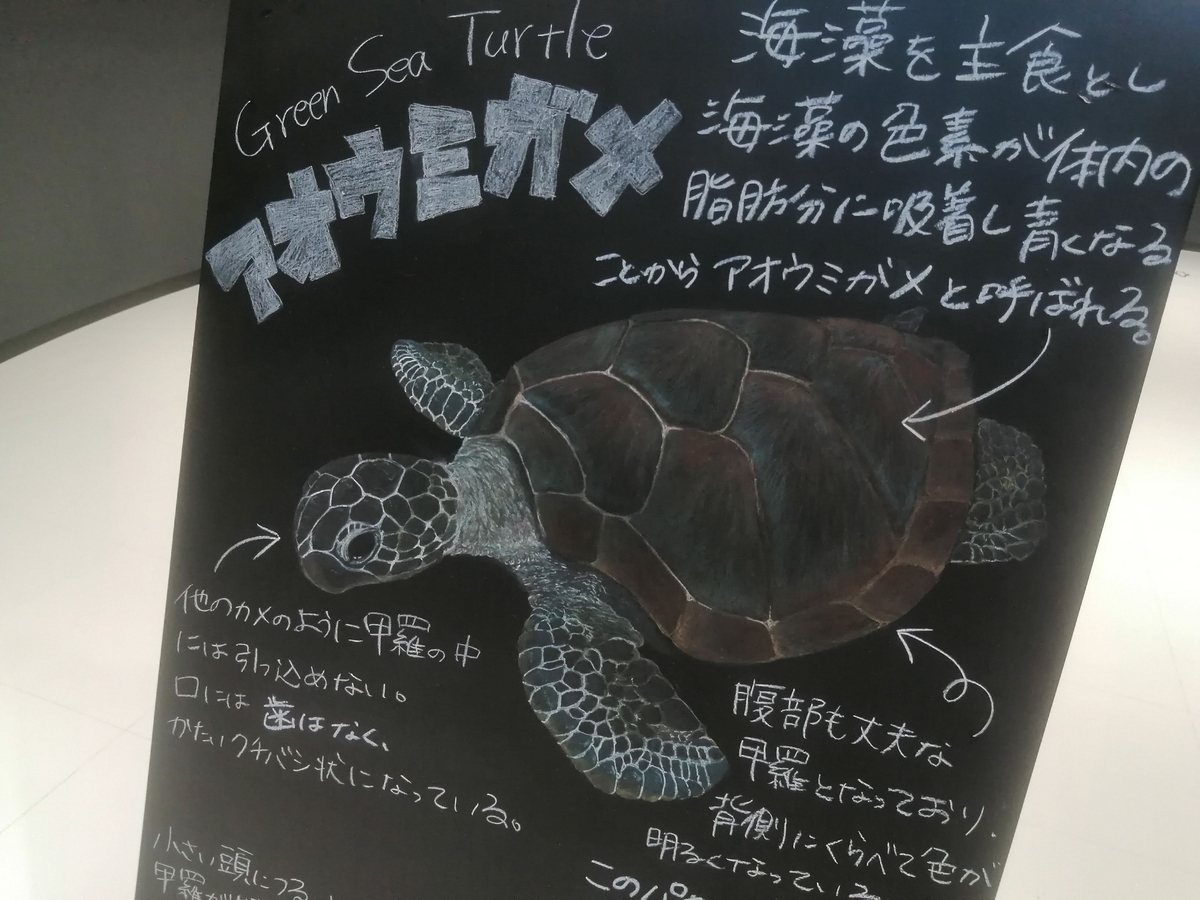 Green Sea Turtle
アオウミガメ
海藻を主食とし
海藻の色素が体内の
脂肪分に吸着し青くなる
ことからアオウミガメと呼ばれる。
他のカメのように甲羅の中
には引っ込めない。
口には歯はなく、
かたいクチバシ状になっている。
腹部も丈夫な
甲羅となっており、
背側にくらべて色が
明るくなっている
このパ
小さい頭につる
甲羅が